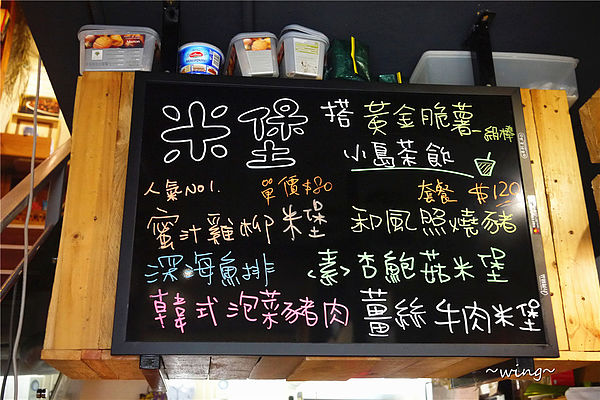 米堡 搭黃金脆薯-細條
小島菜飲
人氣NO1. 單價$80 套餐 $120
蜜汁雞柳米堡 和風照燒豬
深海魚排 <素>杏鮑菇米堡
韓式泡菜豬肉 薑絲牛肉米堡
~wing~